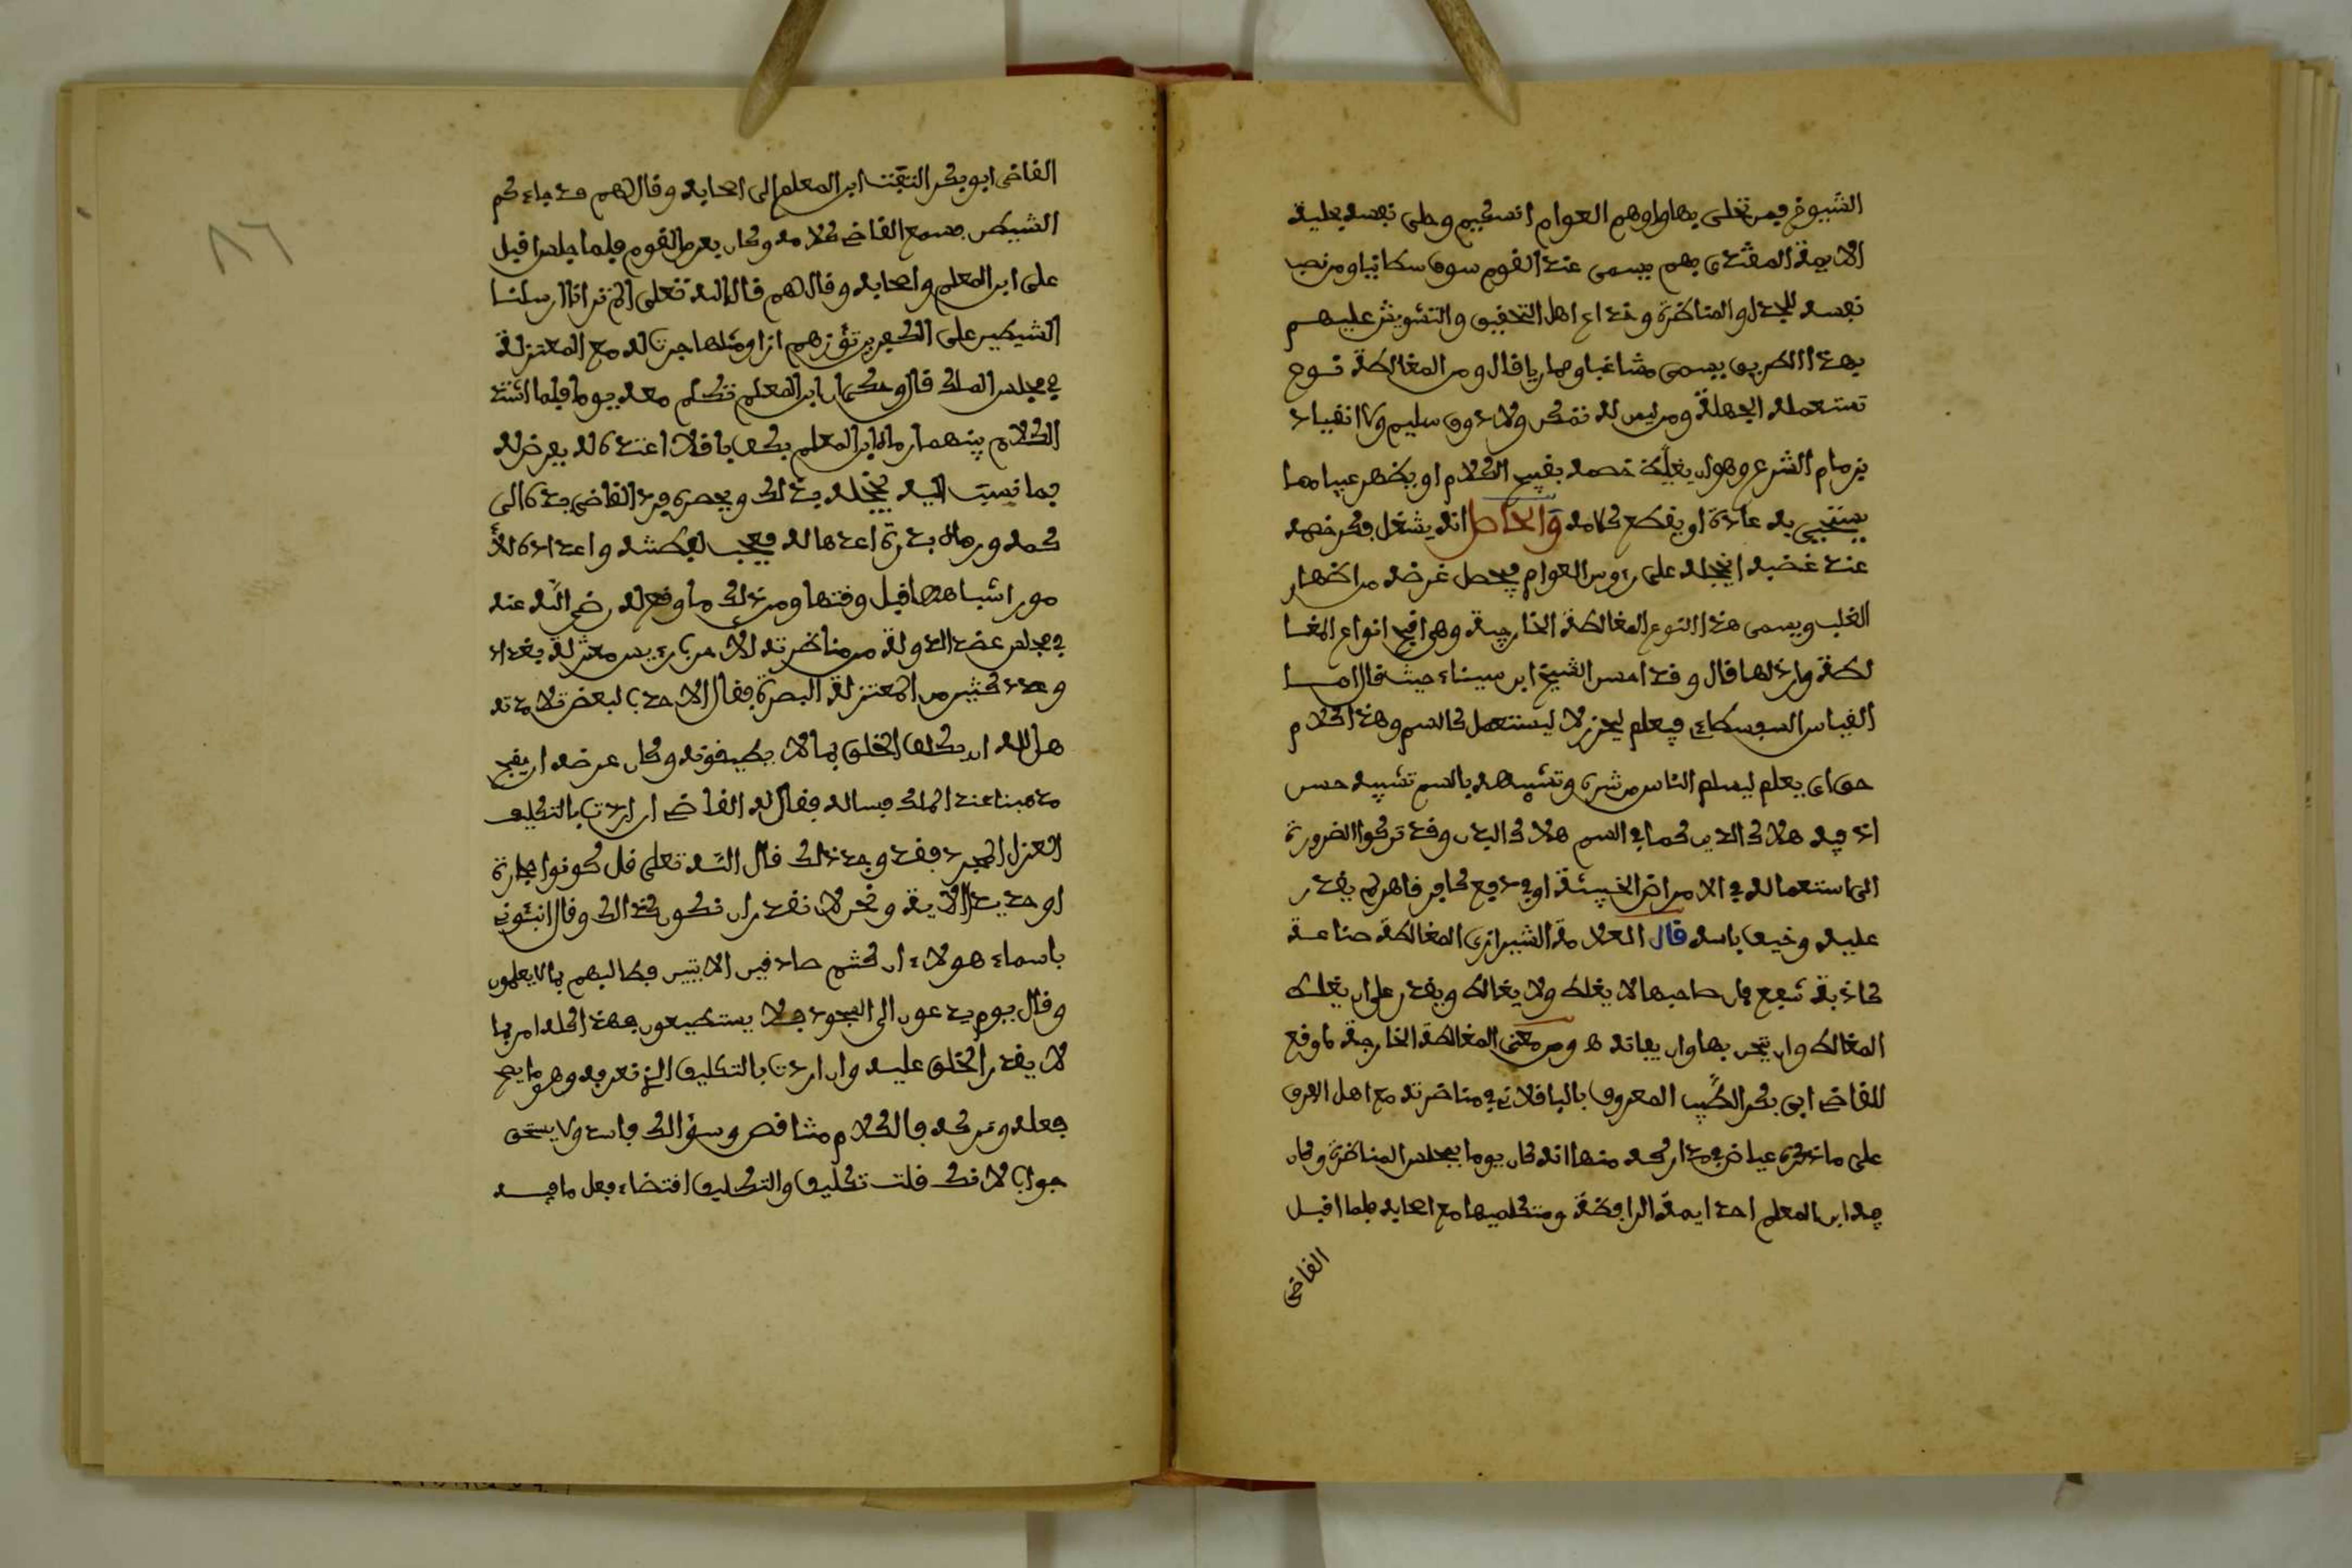 الشيوخ فمن تحلى بها واوهم العوام انه حكيم وحلى نفسه بحلية
الايمة المقتدى بهم يسمى عند القوم سوفسطائيا ومن نصب
نفسه للجدل والمناظرة وخداع اهل التحقيق والتشويش عليهم
بهذا الطريق يسمى مشاغبا ومماريا قال ومن المغالطة نوع
تستعمله الجهلة ومن ليس له تفكر ولا ذوق سليم ولا انقياد
بزمام الشرع وهو ان يغيظ خصمه بقبيح الكلام او يظهر عيبا مما
يستحيى به عادة او يقطع كلامه والحاصل انه يشغل فكر خصمه
عند غضبه انخجله على رءوس العوام فيحصل غرضه من اظهار
الغلب ويسمى هذا النوع المغالطة الخارجية وهى اقبح انواع المغا
لطة وارذلها قال وقد احسن الشيخ ابن سيناء حيث قال امـا
القياس السوفسطاءى فيعلم ليحترز لا ليستعمل كالسم وهذا كلام
حق اى يعلم ليسلم الناس من شره وتشبيهه بالسم تشبيه حسن
اذ فيه هلاك الدين كما فى السم هلاك البدن وقد تركوا الضرورة
الى استعماله فى الامراض الخبيثة او فى دفع كافر قاهر لم يقدر
عليه وخيف باسه قال العلامة الشيرازى المغالطة صناعة
كاذبة تنفع فان صاحبها لا يغلط ولا يغالط ويقدر على ان يغلط
المغالط وان يمتحن بها وان يعانده ومن معنى المغالطة الخارجة ما وقع
للقاضى ابى بكر الطيب المعروف بالباقلانى فى مناضرته مع اهل الفرق
على ما ذكره عياض فى مداركه منها انه كان يوما بمجلس المناظرة وكان
فيه ابن المعلم احد ايمة الرافضة ومتكلميها مع اصحابه فلما اقبل
القاضى
القاضى ابو بكر التفت ابن المعلم الى اصحابه وقال لهم قد جاءكم
الشيطن فسمع القاضى كلامه وكان بعد من القوم فلما جلس اقبل
على ابن المعلم واصحابه وقال لهم قال الله تعلى الم تر انا ارسلنا
الشيطين على الكفرين تؤزهم ازا ومثلها جرت له مع المعتزلة
فى مجلس الملك قال وحكى ان ابن المعلم تكلم معه يوما فلما اشتد
الكلام بينهما رماه ابن المعلم بكف باقلا اعده له يعرض له
بما نسب اليه يخجله بذلك ويحصره فرد القاضى يده الى
كمه ورماه بدرة اعدها له فعجب لفطنته واعداده للأ
مور اشباهها قبل وقتها ومن ذلك ما وقع له رضى الله عنه
فى مجلس عضد الدولة من مناضرته الاحدب رييس معتزلة بغداد
وعدد كثير من المعتزلة البصرة فقال الاحدب لبعض تلامذته
هل لله ان يكلف الخلق بما لا يطيقونه وكان غرضه ان يقبح
مذهبنا عند الملك فساله فقال له القاضى ان اردت بالتكليف
القول المجرد فقد وجد ذلك قال الله تعلى قل كونوا حجارة
او حديدا الاية ونحن لا نقدر ان نكون كذالك وقال انبئونى
باسماء هولاء ان كنتم صادقين الايتين فطالبهم بما لا يعلمون
وقال يوم يدعون الى السجود فلا يستطيعون فهذا كله امر بما
لا يقدر الخلق عليه وان اردت بالتكليف الذى نعرفه وهو ما يصح
فعله وتركه فالكلام متناقض وسؤالك فاسد ولا يستحق
جوابا لانك قلت تكليف والتكليف اقتضاء فعل ما فيه